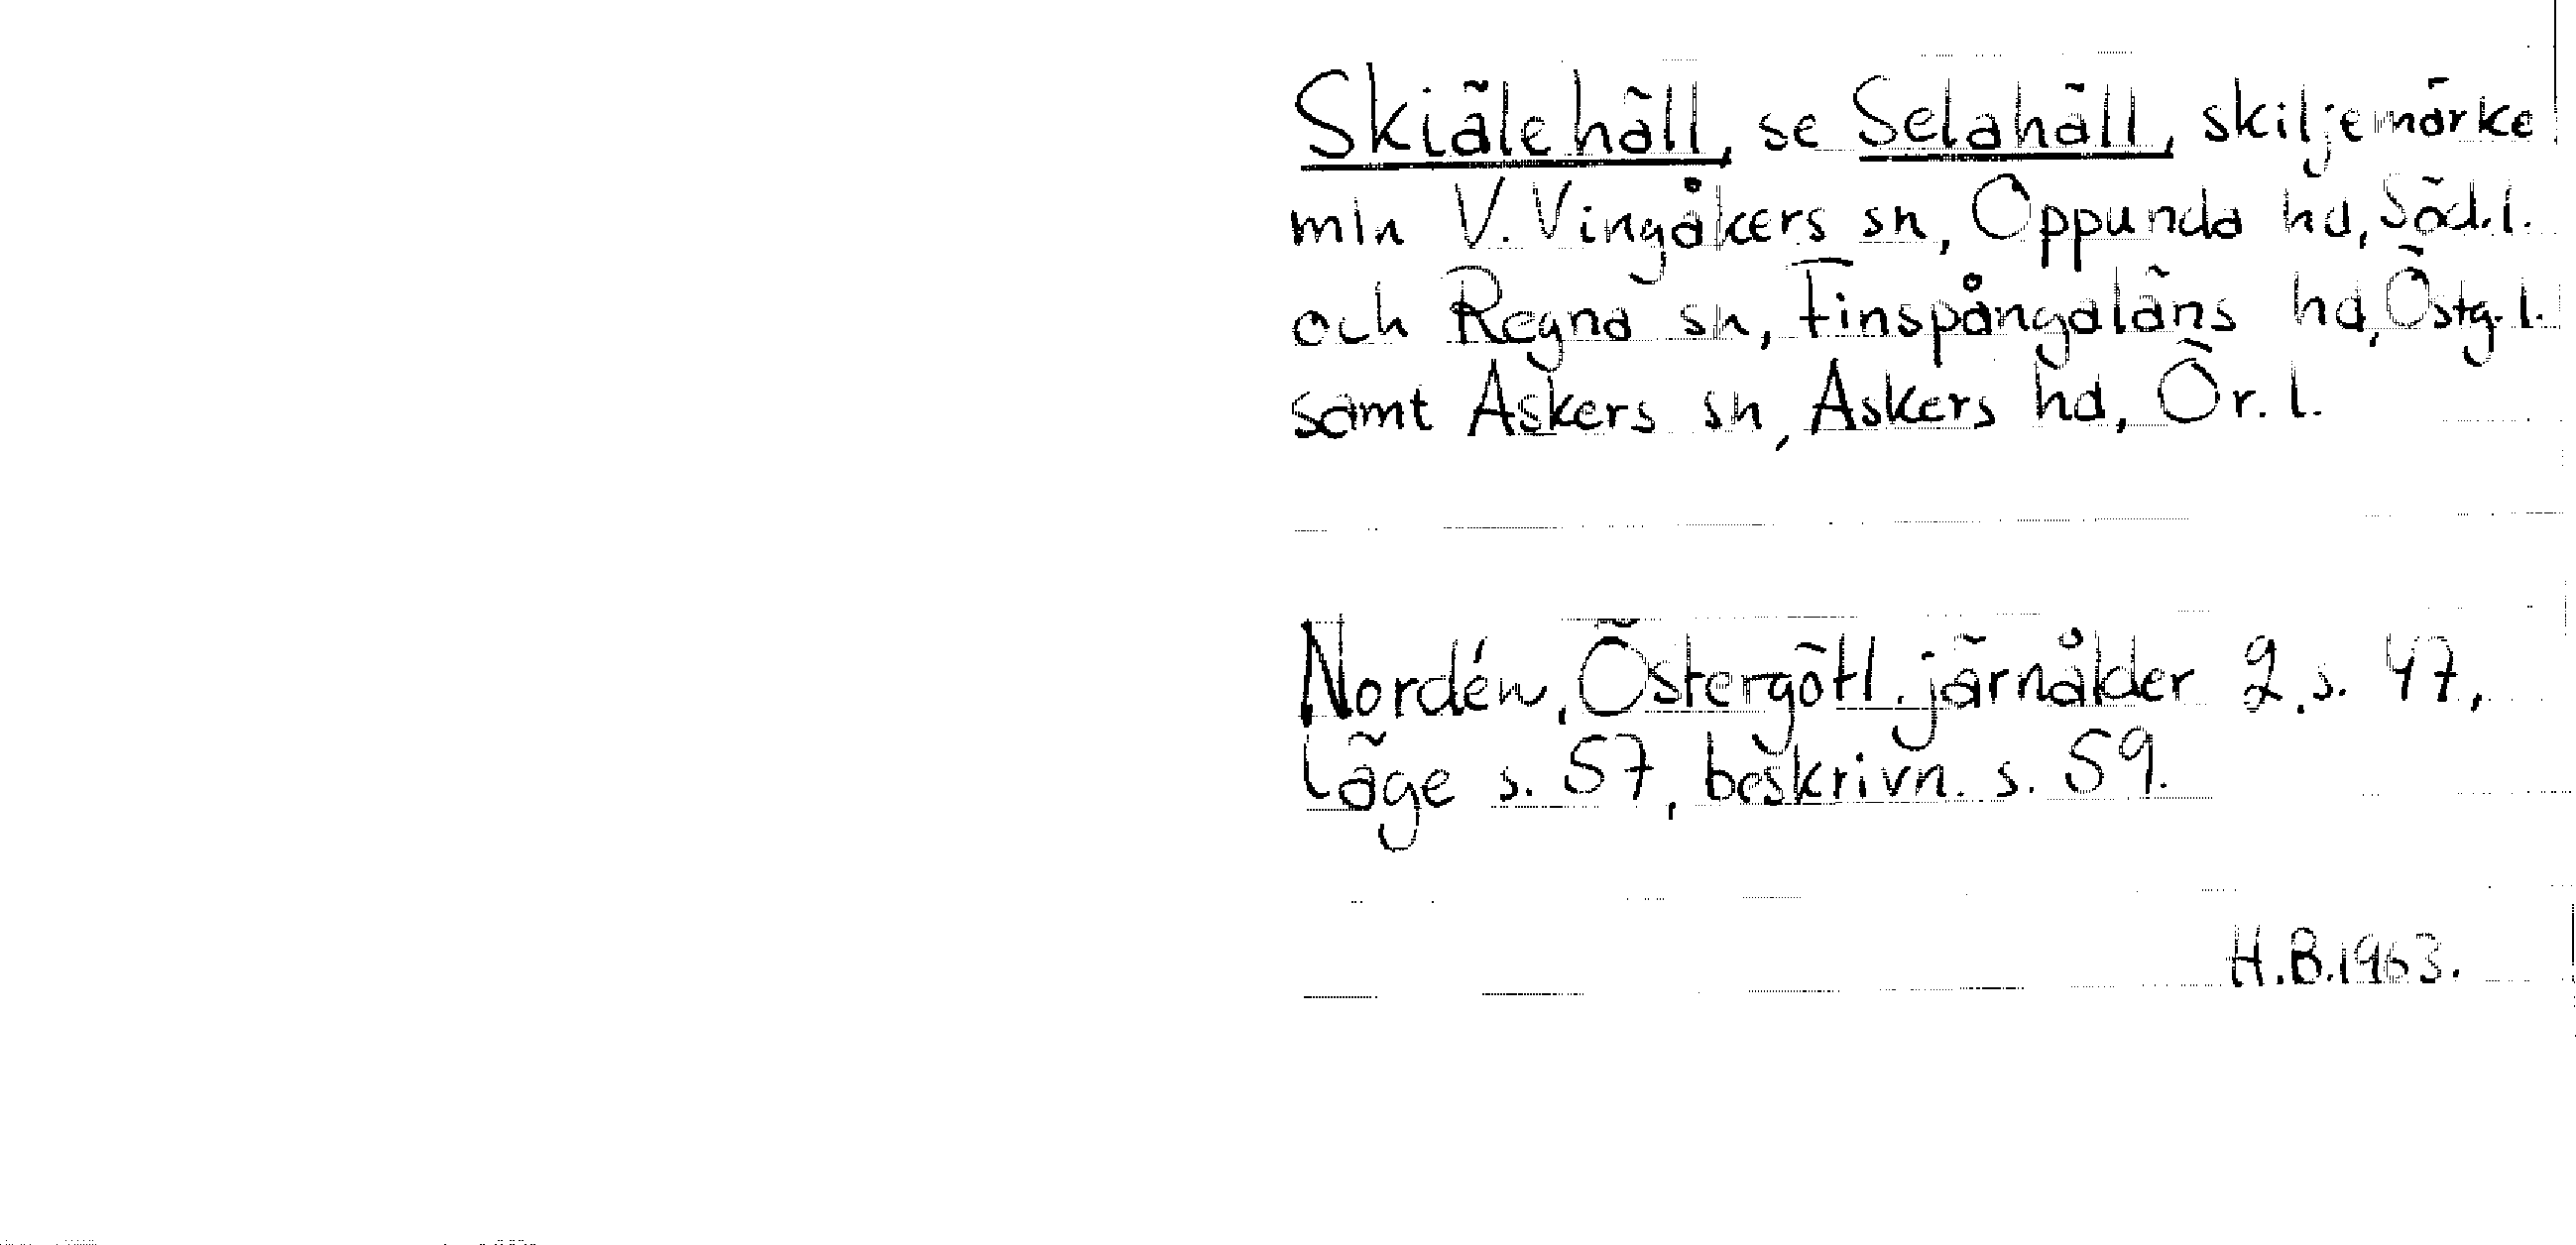 Skiälehäll, se Selahäll, skiljemärke
mln V. Vingåkers sn, Oppunda hd, Söd.l.
och Regna sn, Finspångaläns hd, Östg.l.
samt Askers sn, Askers hd, Ör.l.
Nordén, Östergötl. järnålder 2, s. 47,
läge s. 57, beskrivn. s. 59.
H.B.1963.